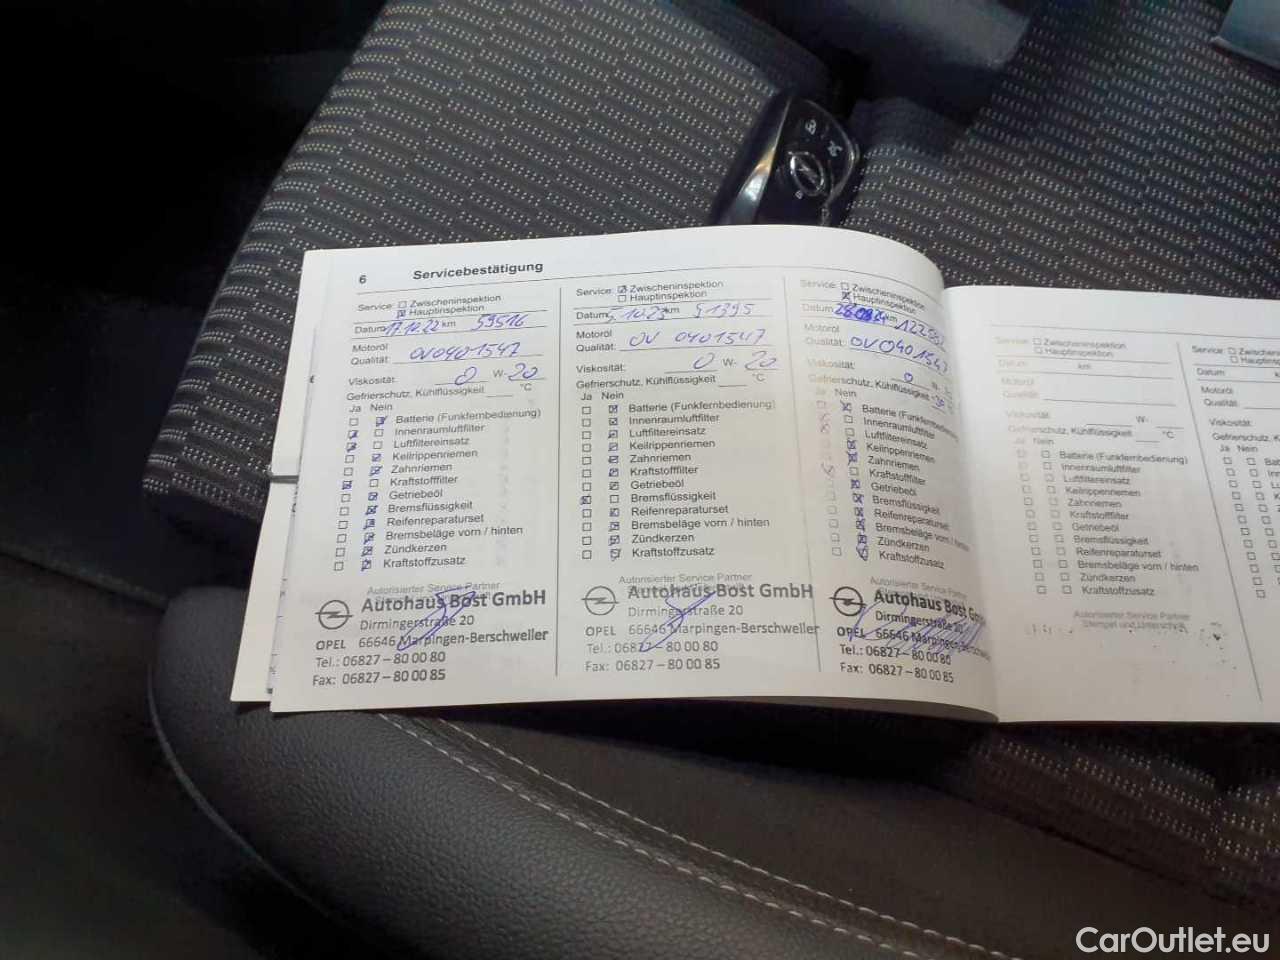 6 Servicebestätigung
Service: Zwischeninspektion
Hauptinspektion
Datum 17.10.22 km 59516
Motoröl
Qualität: OV0401547
Viskosität: 0 W- 20
Gefrierschutz, Kühlflüssigkeit °C
Ja Nein
Batterie (Funkfernbedienung)
Innenraumluftfilter
Luftfiltereinsatz
Keilrippenriemen
Zahnriemen
Kraftstofffilter
Getriebeöl
Bremsflüssigkeit
Reifenreparaturset
Bremsbeläge vorn / hinten
Zündkerzen
Kraftstoffzusatz
Autorisierter Service Partner
Autohaus Bost GmbH
Dirmingerstraße 20
OPEL 66646 Marpingen-Berschweiler
Tel.: 06827 – 80 00 80
Fax: 06827 – 80 00 85
Service: Zwischeninspektion
Hauptinspektion
Datum: 10.23 km 91395
Motoröl
Qualität: OV 0401547
Viskosität: 0 W- 20
Gefrierschutz, Kühlflüssigkeit °C
Ja Nein
Batterie (Funkfernbedienung)
Innenraumluftfilter
Luftfiltereinsatz
Keilrippenriemen
Zahnriemen
Kraftstofffilter
Getriebeöl
Bremsflüssigkeit
Reifenreparaturset
Bremsbeläge vorn / hinten
Zündkerzen
Kraftstoffzusatz
Autorisierter Service Partner
Autohaus Bost GmbH
Dirmingerstraße 20
OPEL 66646 Marpingen-Berschweiler
Tel.: 06827 – 80 00 80
Fax: 06827 – 80 00 85
Service: Zwischeninspektion
Hauptinspektion
Datum km
Motoröl
Qualität: OV0401547
Viskosität: 0 W-
Gefrierschutz, Kühlflüssigkeit °C
Ja Nein
Batterie (Funkfernbedienung)
Innenraumluftfilter
Luftfiltereinsatz
Keilrippenriemen
Zahnriemen
Kraftstofffilter
Getriebeöl
Bremsflüssigkeit
Reifenreparaturset
Bremsbeläge vorn / hinten
Zündkerzen
Kraftstoffzusatz
Autorisierter Service Partner
Autohaus Bost GmbH
Dirmingerstraße 20
OPEL 66646 Marpingen-Berschweiler
Tel.: 06827 – 80 00 80
Fax: 06827 – 80 00 85
Service: Zwischeninspektion
Hauptinspektion
Datum km
Motoröl
Qualität:
Viskosität: W-
Gefrierschutz, Kühlflüssigkeit °C
Ja Nein
Batterie (Funkfernbedienung)
Innenraumluftfilter
Luftfiltereinsatz
Keilrippenriemen
Zahnriemen
Kraftstofffilter
Getriebeöl
Bremsflüssigkeit
Reifenreparaturset
Bremsbeläge vorn / hinten
Zündkerzen
Kraftstoffzusatz
Autorisierter Service Partner
Stempel und Unterschrift
Service:
Datum
Motoröl
Qualität:
Viskosität:
Ja Nein
CarOutlet.eu